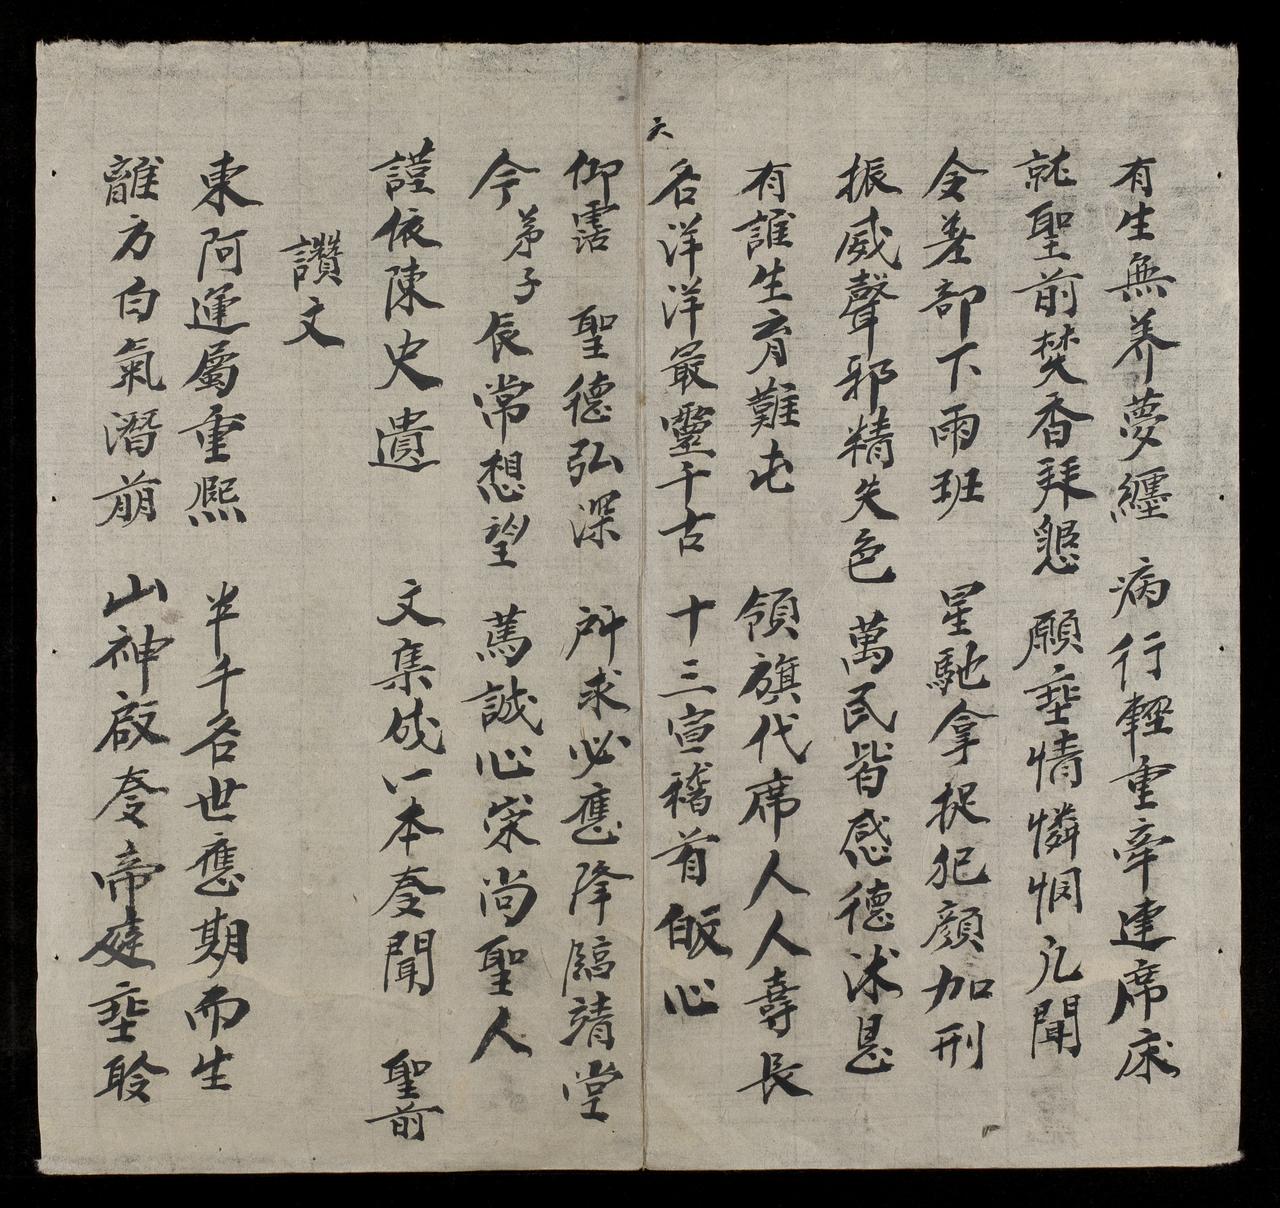 有生無养夢纏 病行輕重牽連席床
就聖前焚香拜懇 願垂情憐悯凢聞
令差部下兩班 星馳拿捉犯顔加刑
振威聲邪精失色 萬民皆感德沭恩
有誰生育難屯 領旗代席人人壽長
名洋洋最靈千古 十三宣稽首皈心
天
仰霑 聖德弘深 所求必應降臨靖堂
今弟子辰常想望 篤誠心宗尚聖人
謹依陳史遺 文集成一本奏聞 聖前
讚文
東阿運屬重熙 半千名世應期而生
離方白氣潛萠 山神啟奏帝庭垂聆